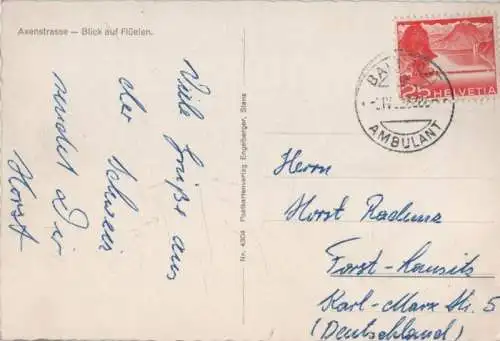 Axenstrasse — Blick auf Flüelen.
Viele Grüße aus
der Schweiz
sendet Dir
Horst
Nr. 4304 Postkartenverlag Engelberger, Stans
25 HELVETIA
AMBULANT
Herrn
Horst Radunz
Forst-Lausitz
Karl-Marx Str. 5
(Deutschland)